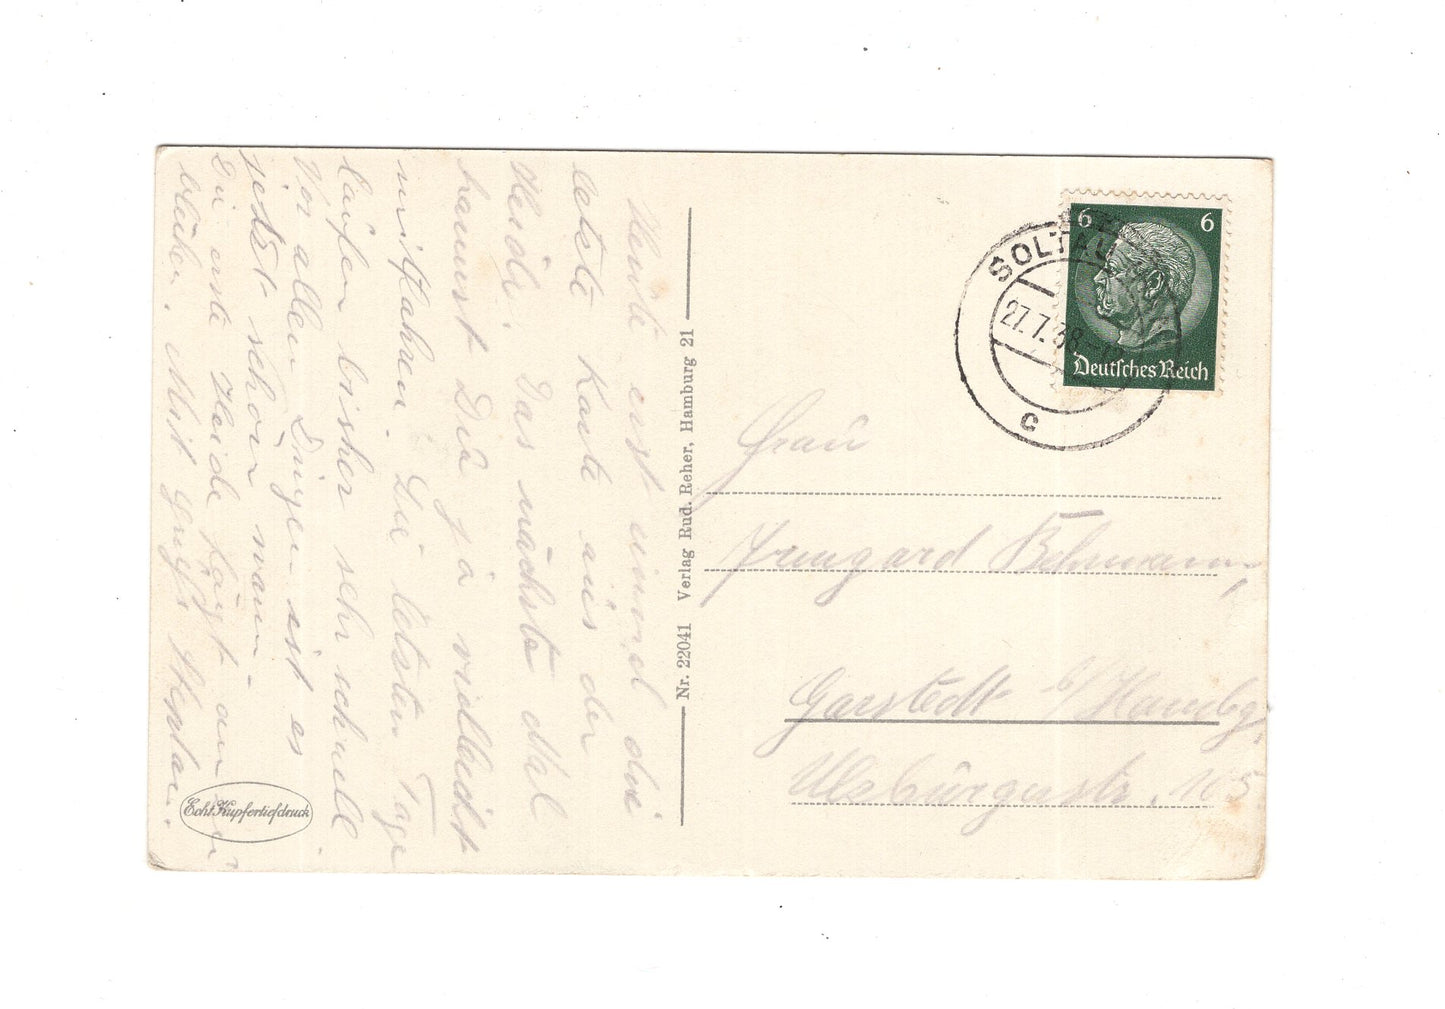 Heute erst einmal die
letzte Karte aus der
Heide. Das nächste Mal
kannst Du ja vielleicht
mitfahren. Die letzten Tage
laufen bisher sehr schnell.
Vor allen Dingen ist es
jetzt schön warm.
Die erste Heide fängt an zu
blühen. Mit Gruß Stephan.
Echt Kupfertiefdruck
Nr. 22041 Verlag Rud. Reher, Hamburg 21
SOLTAU
27.7.38
c
6 6
Deutsches Reich
Frau
Irmgard Behrmann,
Garstedt b/Hambg.
Ulzburgerstr. 105